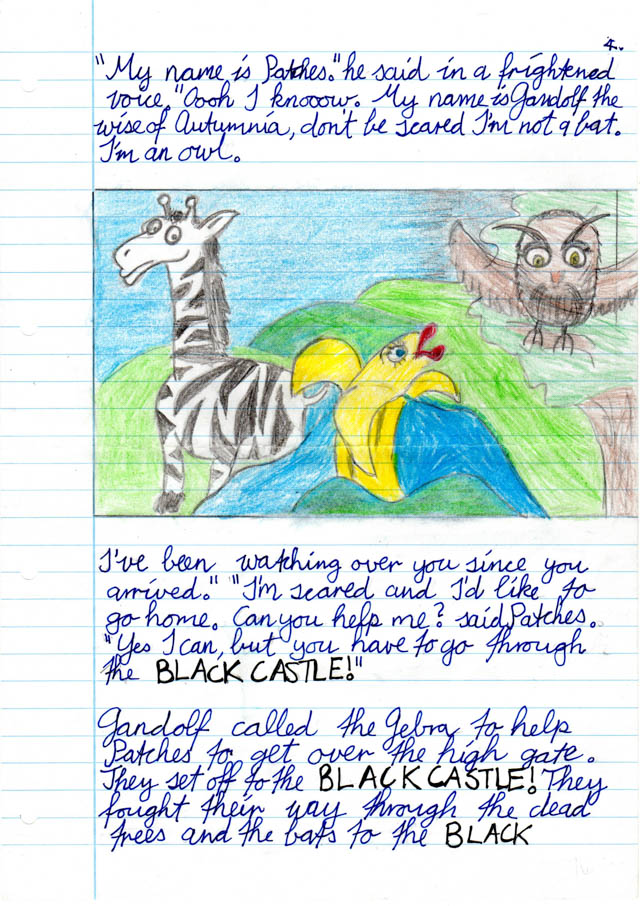 4.
"My name is Patches." he said in a frightened
voice. "Oooh I knooow. My name is Gandolf the
wise of Autumnia, don't be scared I'm not a bat.
I'm an owl.
I've been watching over you since you
arrived." "I'm scared and I'd like to
go home. Can you help me? said Patches.
"Yes I can, but you have to go through
the BLACK CASTLE!"
Gandolf called the Gebra to help
Patches to get over the high gate.
They set off to the BLACK CASTLE! They
fought their way through the dead
trees and the bats to the BLACK